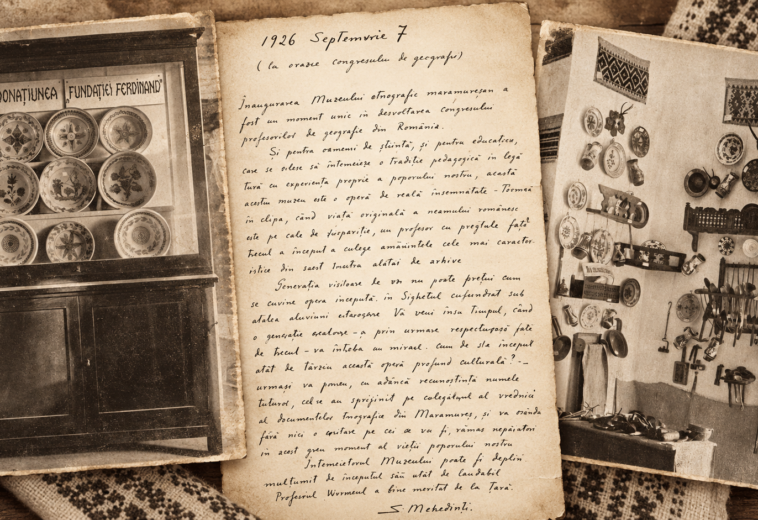 DONAȚIUNEA „FUNDAȚIEI FERDINAND"
1926 Septemvrie 7
(Cu orazie congresului de geografi)
Înaugurarea Muzeului etnografic maramureșan a
fost un moment unic în desvoltarea congresului
profesorilor de geografie din România.
Și pentru oameni de știintă, și pentru educatien,
care se silese să întemeieze o tradiție pedagogică în legă
tură cu experiența proprie a poporului nostru, aceastā
acestui muzeu este o operă de reală însemnătate - Tocmai
in clipa, când viață originală a neamului românesc
este pe cale de , un profesor cu pregtule față
trecut a început a culege amănintele cele mai caracter.
istice din alătai de arhive
Generația viitoare de voi nu poate prețui cum
se cuvine opera începută. in Sighetul cufundrat sub
atâlea aluviuni Vă veni însa timpul, când
o generație - a prin urmare respectuoasă fate
de trecut - va întreba au mirare. cum de s'a inceput
atât de târziu această operă profund culturală? -
urmași va pomeni, cu adâncă recunostință numele
tuturor, celce au sprijinit pe colegălul al vrednicē
al documentelor din Maramureș, și va osândi
fără nici o pe cei ce va fi, rămas nepăsaton
in acest greu moment al vieții poporului nostru
Întemeietorul Muzeului poate fi deplin
multumit de începutul său atât de laudabil
Profesorul a bine meritat de la Țară.
S. Mehedinți.